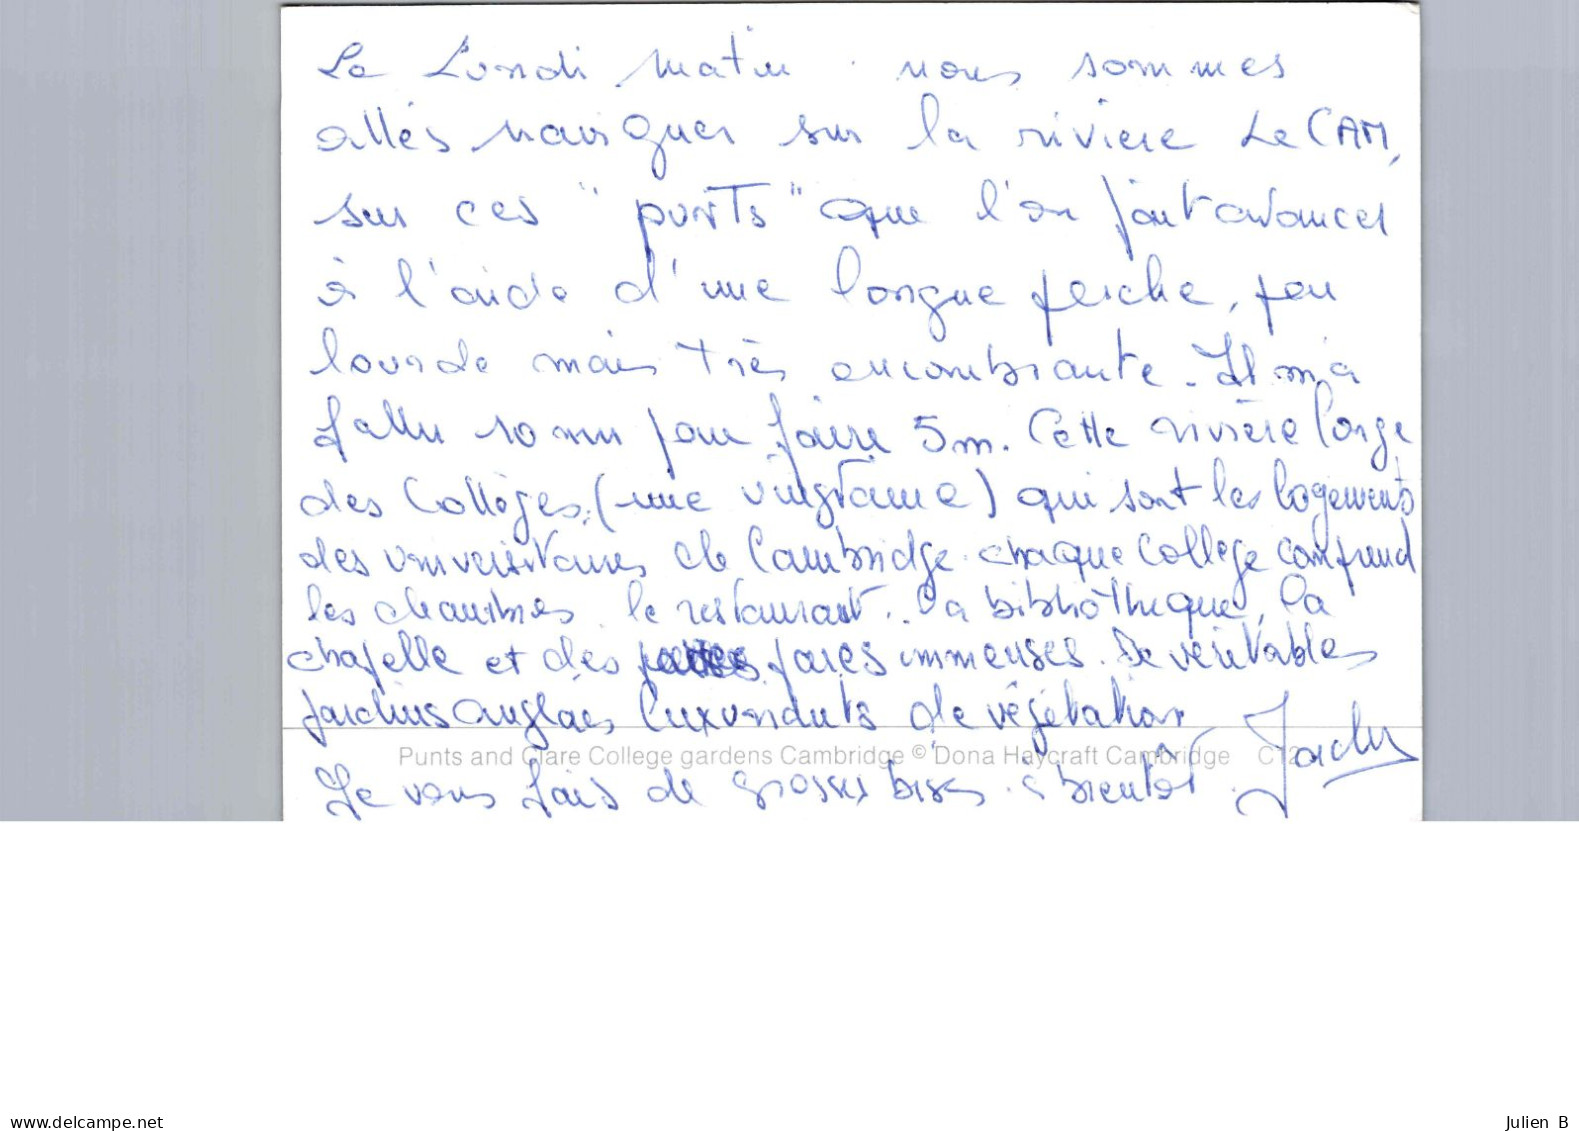 Le Lundi matin. nous sommes
allés naviguer sur la rivière Le CAM,
sur ces "punts" que l'on fait avancer
à l'aide d'une longue perche, peu
lourde mais très encombrante. Il m'a
fallu 10 mn pour faire 5m. Cette rivière longe
des Collèges, (une vingtaine) qui sont les logements
des universitaires de Cambridge. chaque College comprend
les chambres. le restaurant.. la bibliothèque, la
chapelle et des parcs immenses. De véritables
Jardins anglais luxuriants de végétation
Punts and Clare College gardens Cambridge © Dona Haycraft Cambridge C12
Je vous fais de grosses bises. à bientôt.
www.delcampe.net
Julien B